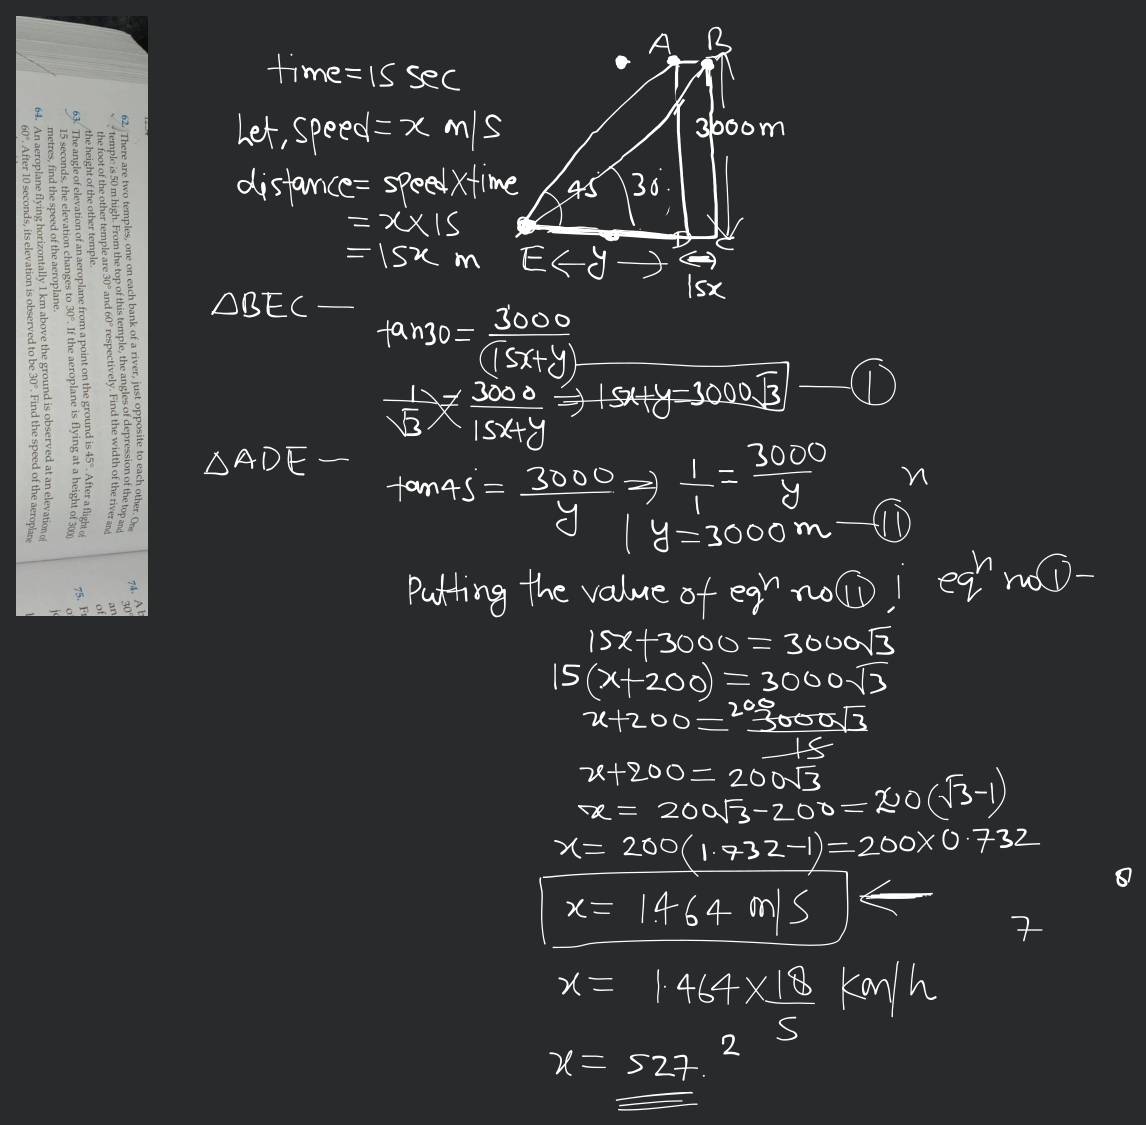 12.34
62. There are two temples, one on each bank of a river, just opposite to each other. One
temple is 50 m high. From the top of this temple, the angles of depression of the top and
the foot of the other temple are 30° and 60° respectively. Find the width of the river and
the height of the other temple.
63. The angle of elevation of an aeroplane from a point on the ground is 45°. After a flight of
15 seconds, the elevation changes to 30°. If the aeroplane is flying at a height of 3000
metres, find the speed of the aeroplane.
64. An aeroplane flying horizontally 1 km above the ground is observed at an elevation of
60°. After 10 seconds, its elevation is observed to be 30°. Find the speed of the aeroplane
74. A
30°
an
of
75.
time=15 sec
Let, speed = x m/s
distance= speed×time
= x×15
= 15x m
A B
3000m
45 30
E ←y→ D C
15x
△BEC —
tan30 = 3000/(15x+y)
1/√3 = 3000/15x+y ⇒ 15x+y=3000√3 — (I)
△ADE —
tan45 = 3000/y ⇒ 1/1 = 3000/y
n
| y=3000 m — (II)
Putting the value of eqⁿ no (II) i eqⁿ no (I) -
15x+3000 = 3000√3
15(x+200) = 3000√3
x+200 = 200 3000√3/15
x+200 = 200√3
x = 200√3-200 = 200(√3-1)
x = 200(1.732-1) = 200×0.732
x = 146.4 m/s ←
8
7
x = 1.464×18/5 Km/h
x = 527.2